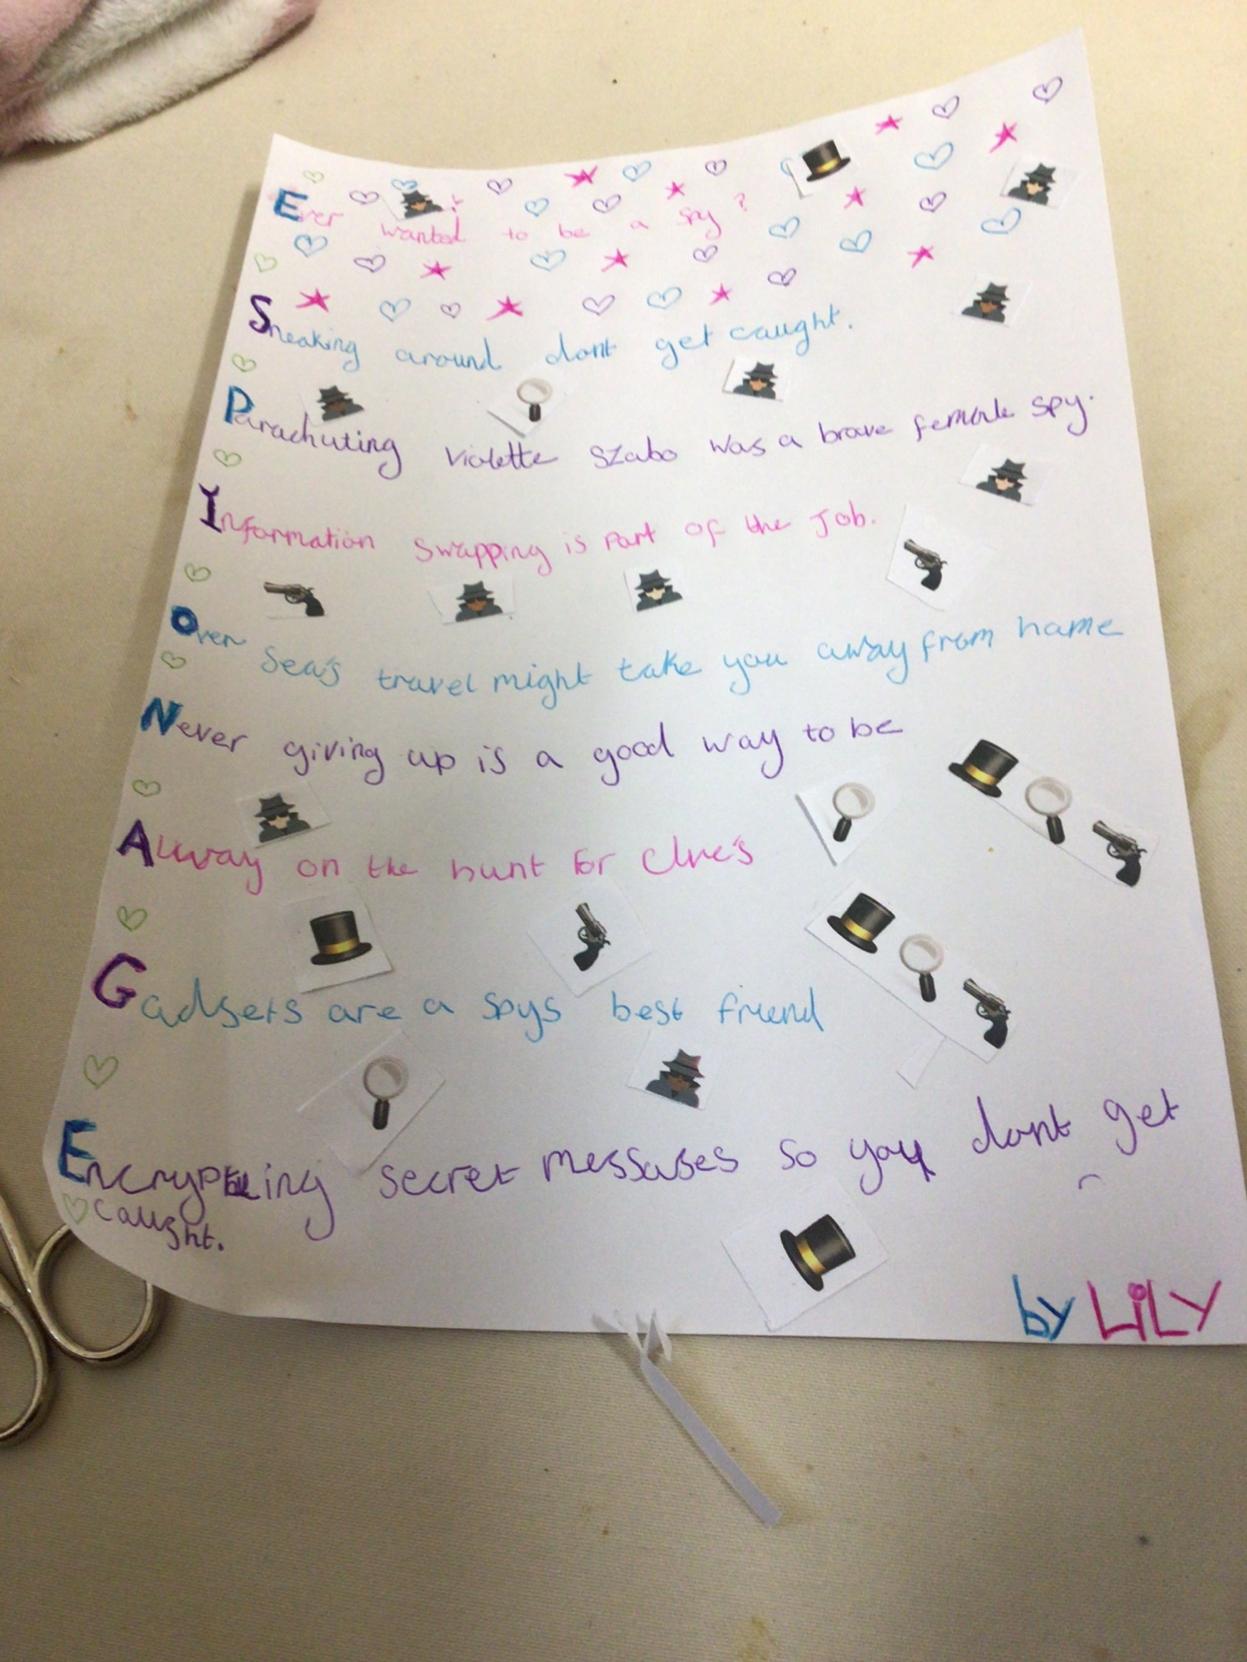 Ever wanted to be a spy?
Sneaking around dont get caught.
Parachuting Violette Szabo was a brave female spy.
Information swapping is part of the Job.
Over Sea's travel might take you away from home
Never giving up is a good way to be
Alway on the hunt for Clue's
Gadgets are a Spys best friend
Encrypting secret messages so you dont get
caught.
by LiLY